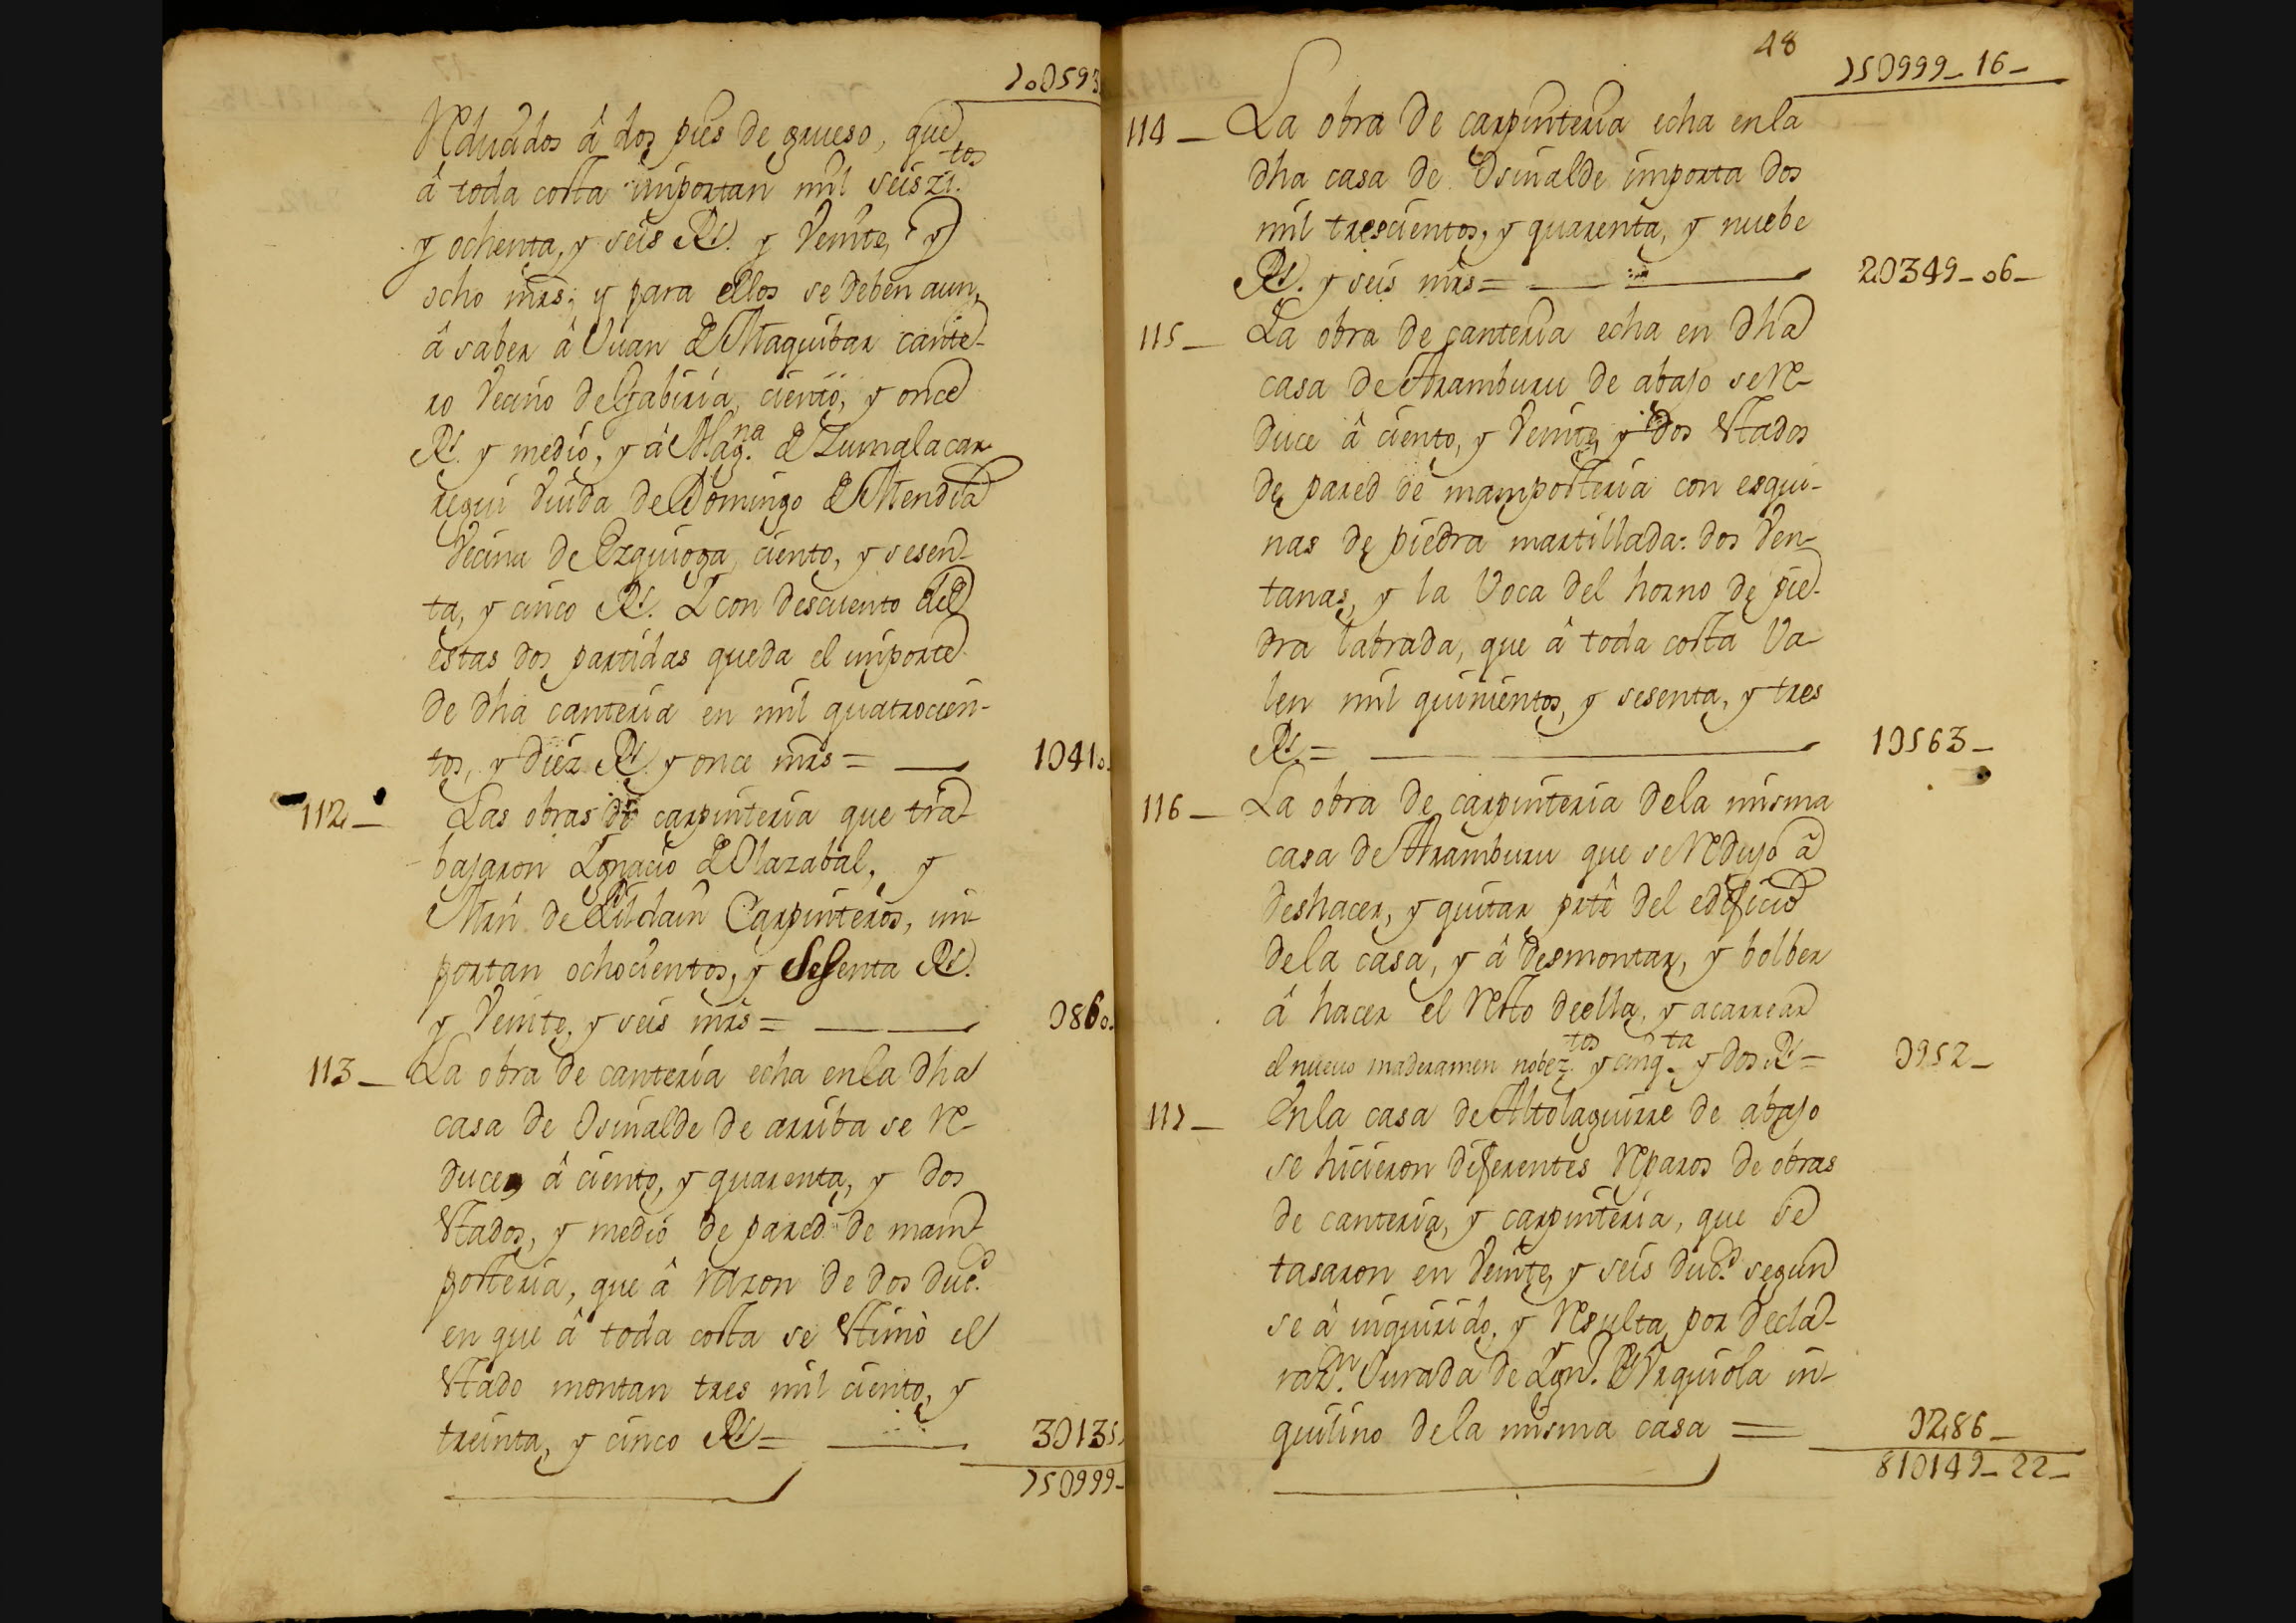 70U593
Reducidos â dos pies de grueso, que
â toda costa importan mil seiszi.tos
y ochenta, y seis Rs. y Veinte, y
ocho mrs; y para ellos se deben aun,
â saber â Juan de Maguibar cante-
ro Vecino de Gabiria, ciento, y once
Rs. y medio, y â Mag.na de Zumalacar
regui Viuda de Domingo de Mendia
Vecina de Ezquioga, ciento, y sesen-
ta, y cinco Rs. Y con descuento de
estas dos partidas queda el importe
de dha canteria en mil quatrocien-
tos, y diez Rs. y once mrs = 1U410.
112 Las obras de carpinteria que tra-
bajaron Ignacio de Olazabal, y
Mrn. de Lildain Carpinteros, im-
portan ochocientos, y Sesenta Rs.
y Veinte, y seis mrs = U860.
113 La obra de canteria echa en la dha
casa de Osinalde de arriba se re-
ducen â ciento, y quarenta, y dos
Estados, y medio de pared de mam-
posteria, que â razon de dos duc.s
en que â toda costa se Estimò el
Estado montan tres mil ciento, y
treinta, y cinco Rs = 3U135
75U999-
48
75U999-16-
114 La obra de carpinteria echa en la
dha casa de Osinalde importa dos
mil trescientos, y quarenta, y nuebe
Rs. y seis mrs = 2U349-06-
115 La obra de canteria echa en dha
casa de Aramburu de abajo se Re-
duce â ciento, y Veinte, y dos Estados
de pared de mamposteria con esqui-
nas de piedra martillada: dos Ven-
tanas, y la Voca del horno de pie-
dra labrada, que â toda costa Va-
len mil quinientos, y sesenta, y tres
Rs. = 1U563-
116 La obra de carpinteria de la misma
casa de Aramburu que se Redujo â
deshacer, y quitar prte del edificio
de la casa, y â desmontar, y bolber
â hacer el Resto de ella, y acarrear
el nuevo maderamen nobez.tos y cinq.ta y dos Rs = U952-
117 En la casa de Altolaguirre de abajo
se hicieron diferentes Reparos de obras
de canteria, y carpinteria, que se
tasaron en Veinte, y seis duc.s segun
se â inquirido, y Resulta por decla-
raz.n Jurada de Ign.o de Urquiola in-
quilino de la misma casa = U286-
81U149-22-